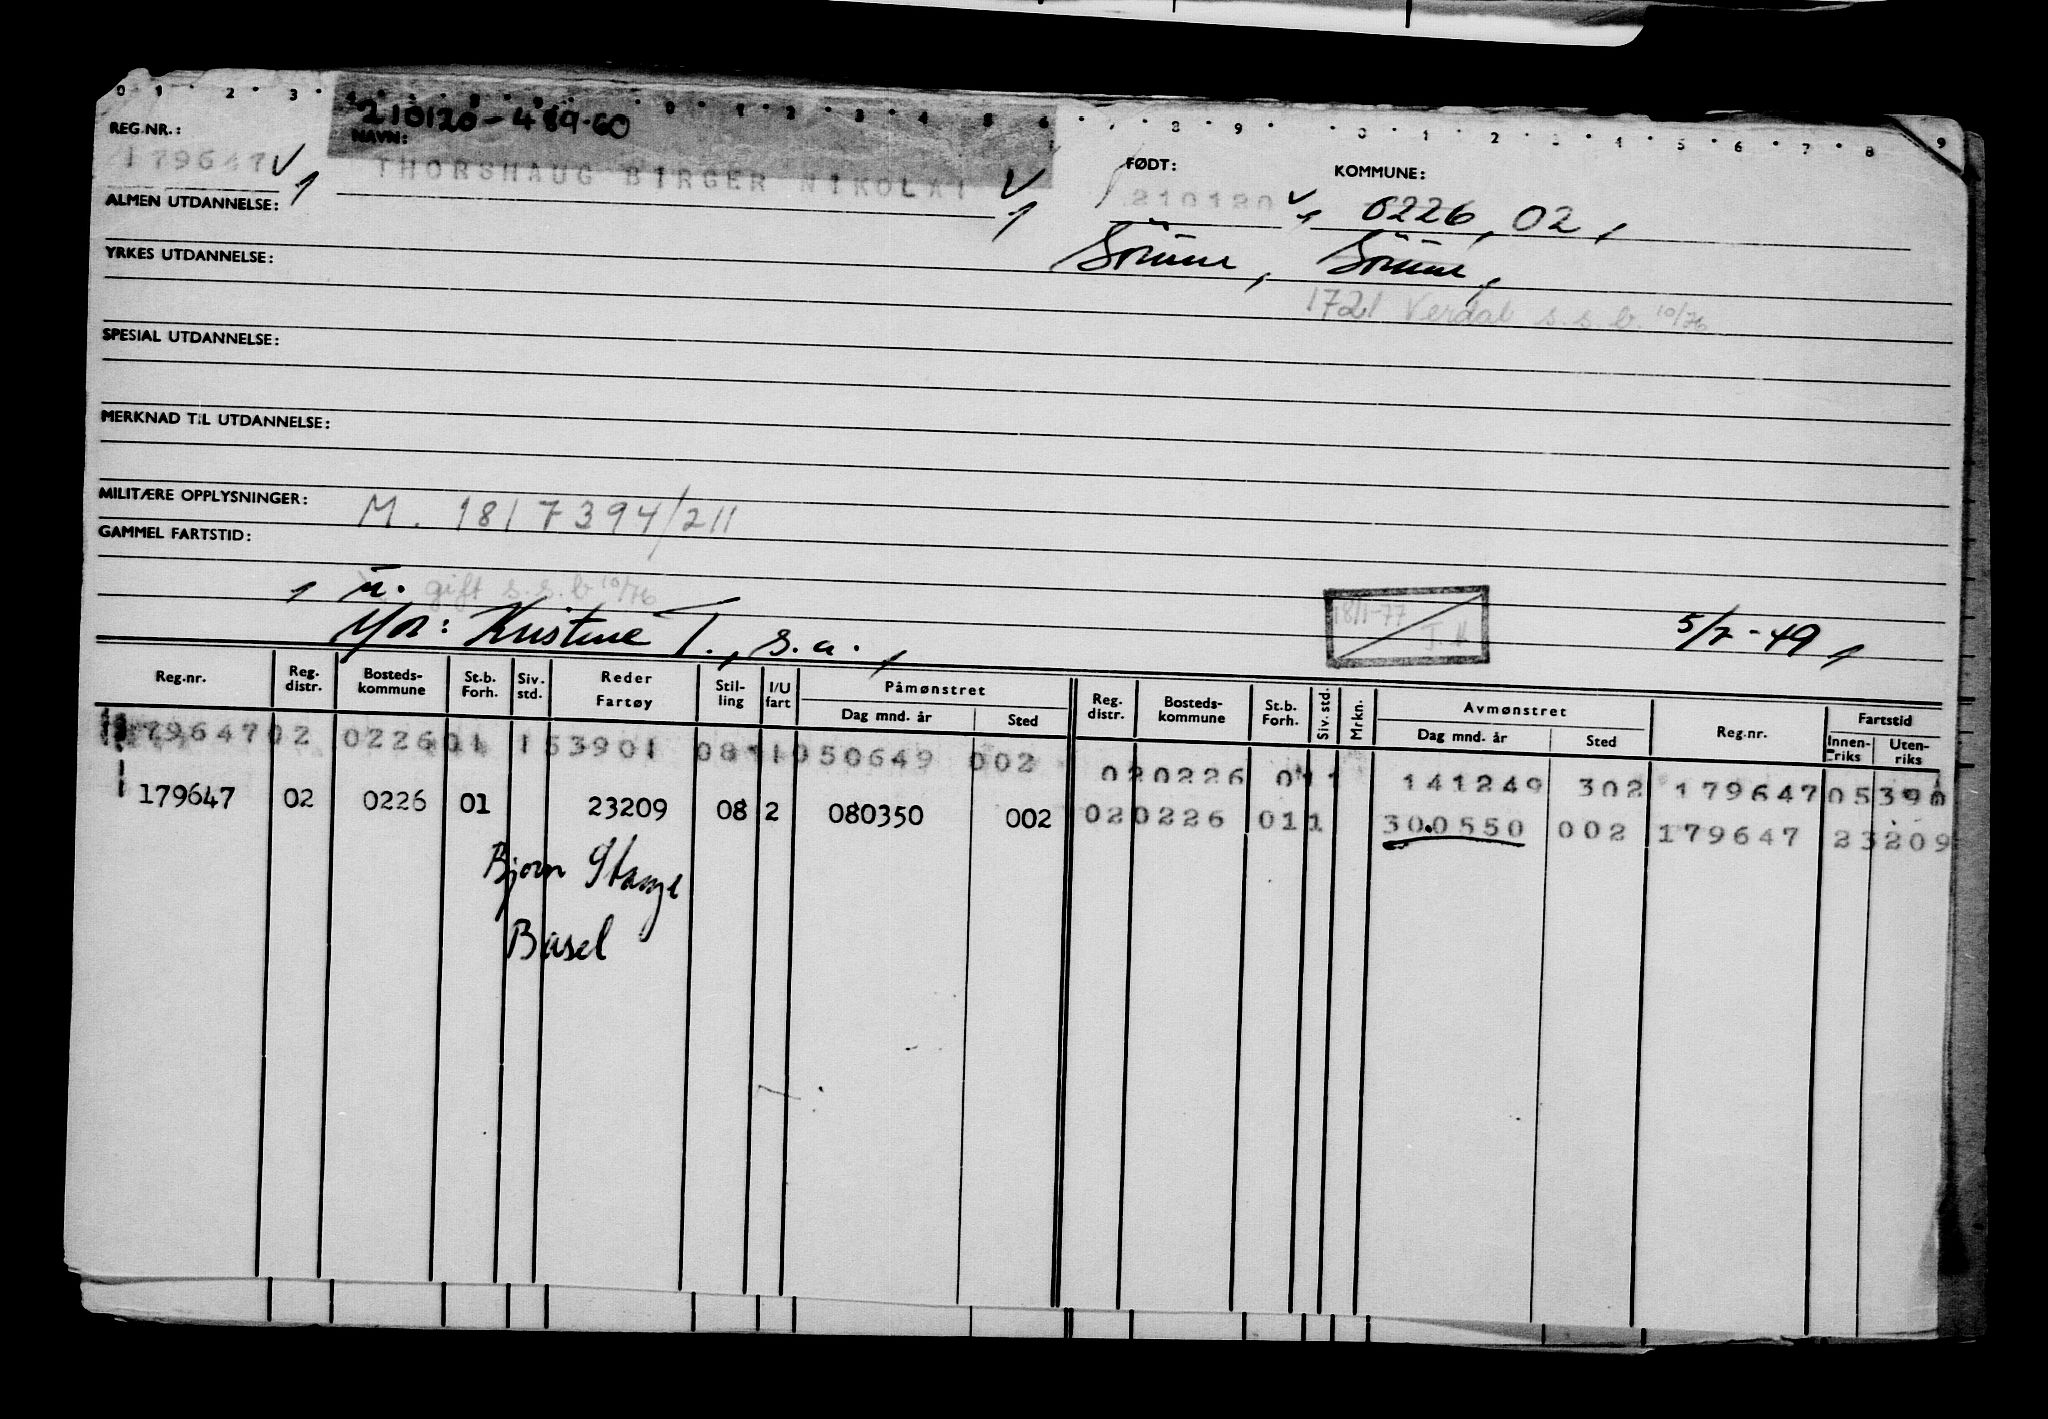 0 1 2 3 4 5 6 7 8 9 0 1 2 3 4 5 6 7 8 9 0 1 2 3 4 5 6 7 8 9
210120-489.60
REG.NR.: NAVN: FØDT: KOMMUNE:
179647 THORSHAUG BIRGER NIKOLAI 210120 0226, 02,
ALMEN UTDANNELSE:
YRKES UTDANNELSE:
1721 Verdal s.s.b. 10/76
SPESIAL UTDANNELSE:
MERKNAD TIL UTDANNELSE:
MILITÆRE OPPLYSNINGER: M. 1817394/211
GAMMEL FARTSTID:
u. gift s.s.b 10/76
18/1-77
Mor: Kristine T., s.a., 5/7-49,
Reg.nr. Reg. distr. Bosteds-kommune St.b. Forh. Siv. std. Reder Fartøy Stil-ling I/U fart Påmønstret Dag mnd. år Sted Reg. distr. Bosteds-kommune St.b. Forh. Siv. std. Mrkn. Avmønstret Dag mnd. år Sted Reg.nr. Fartstid Innen-riks Uten-riks
179647 02 0226 01 1 53901 08 1 050649 002 02 0226 01 1 141249 302 179647 05390
179647 02 0226 01 23209 08 2 080350 002 02 0226 01 1 300550 002 179647 23209
Bjørn Stange
Basel